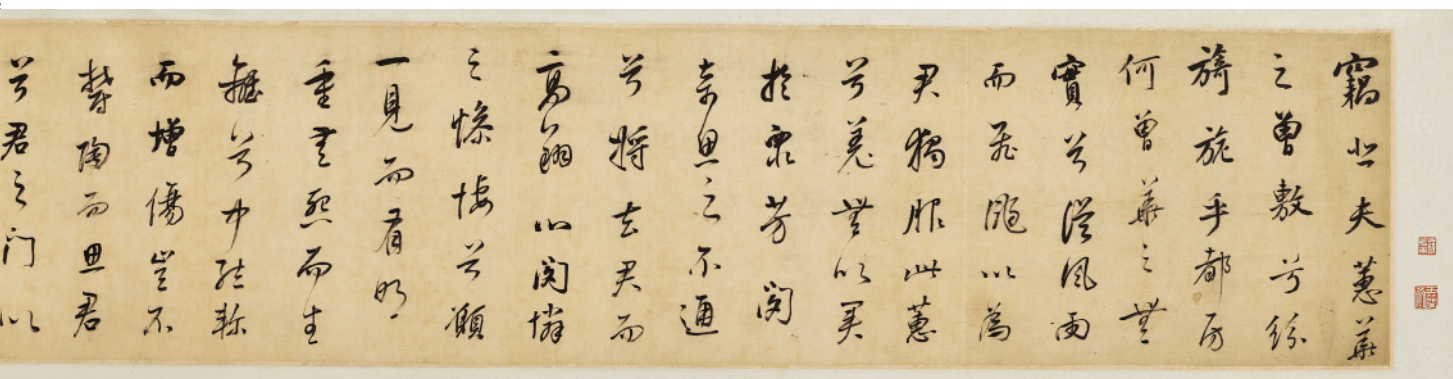 竊悲夫蕙華
之曾敷兮紛
旖旎乎都房
何曾華之無
實兮從風雨
而飛颺以為
君獨服此蕙
兮羌無以異
於衆芳閔
奇思之不通
兮將去君而
高翔心閔憐
之慘悽兮願
一見而有明
重無怨而生
離兮中結軫
而增傷豈不
鬱陶而思君
兮君之門以